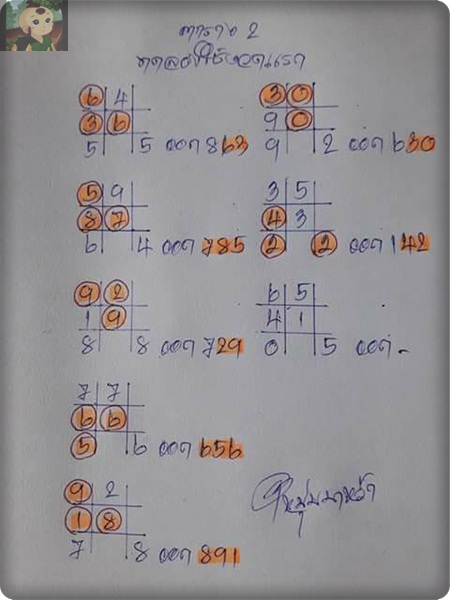 ตาราง 2
6 4
3 6
5 5 ออก 863
5 9
8 7
6 4 ออก 785
9 2
1 9
8 8 ออก 729
7 7
6 6
5 6 ออก 656
9 2
1 8
7 8 ออก 891
3 0
9 0
9 2 ออก 630
3 5
4 3
2 2 ออก 142
6 5
4 1
0 5 ออก -